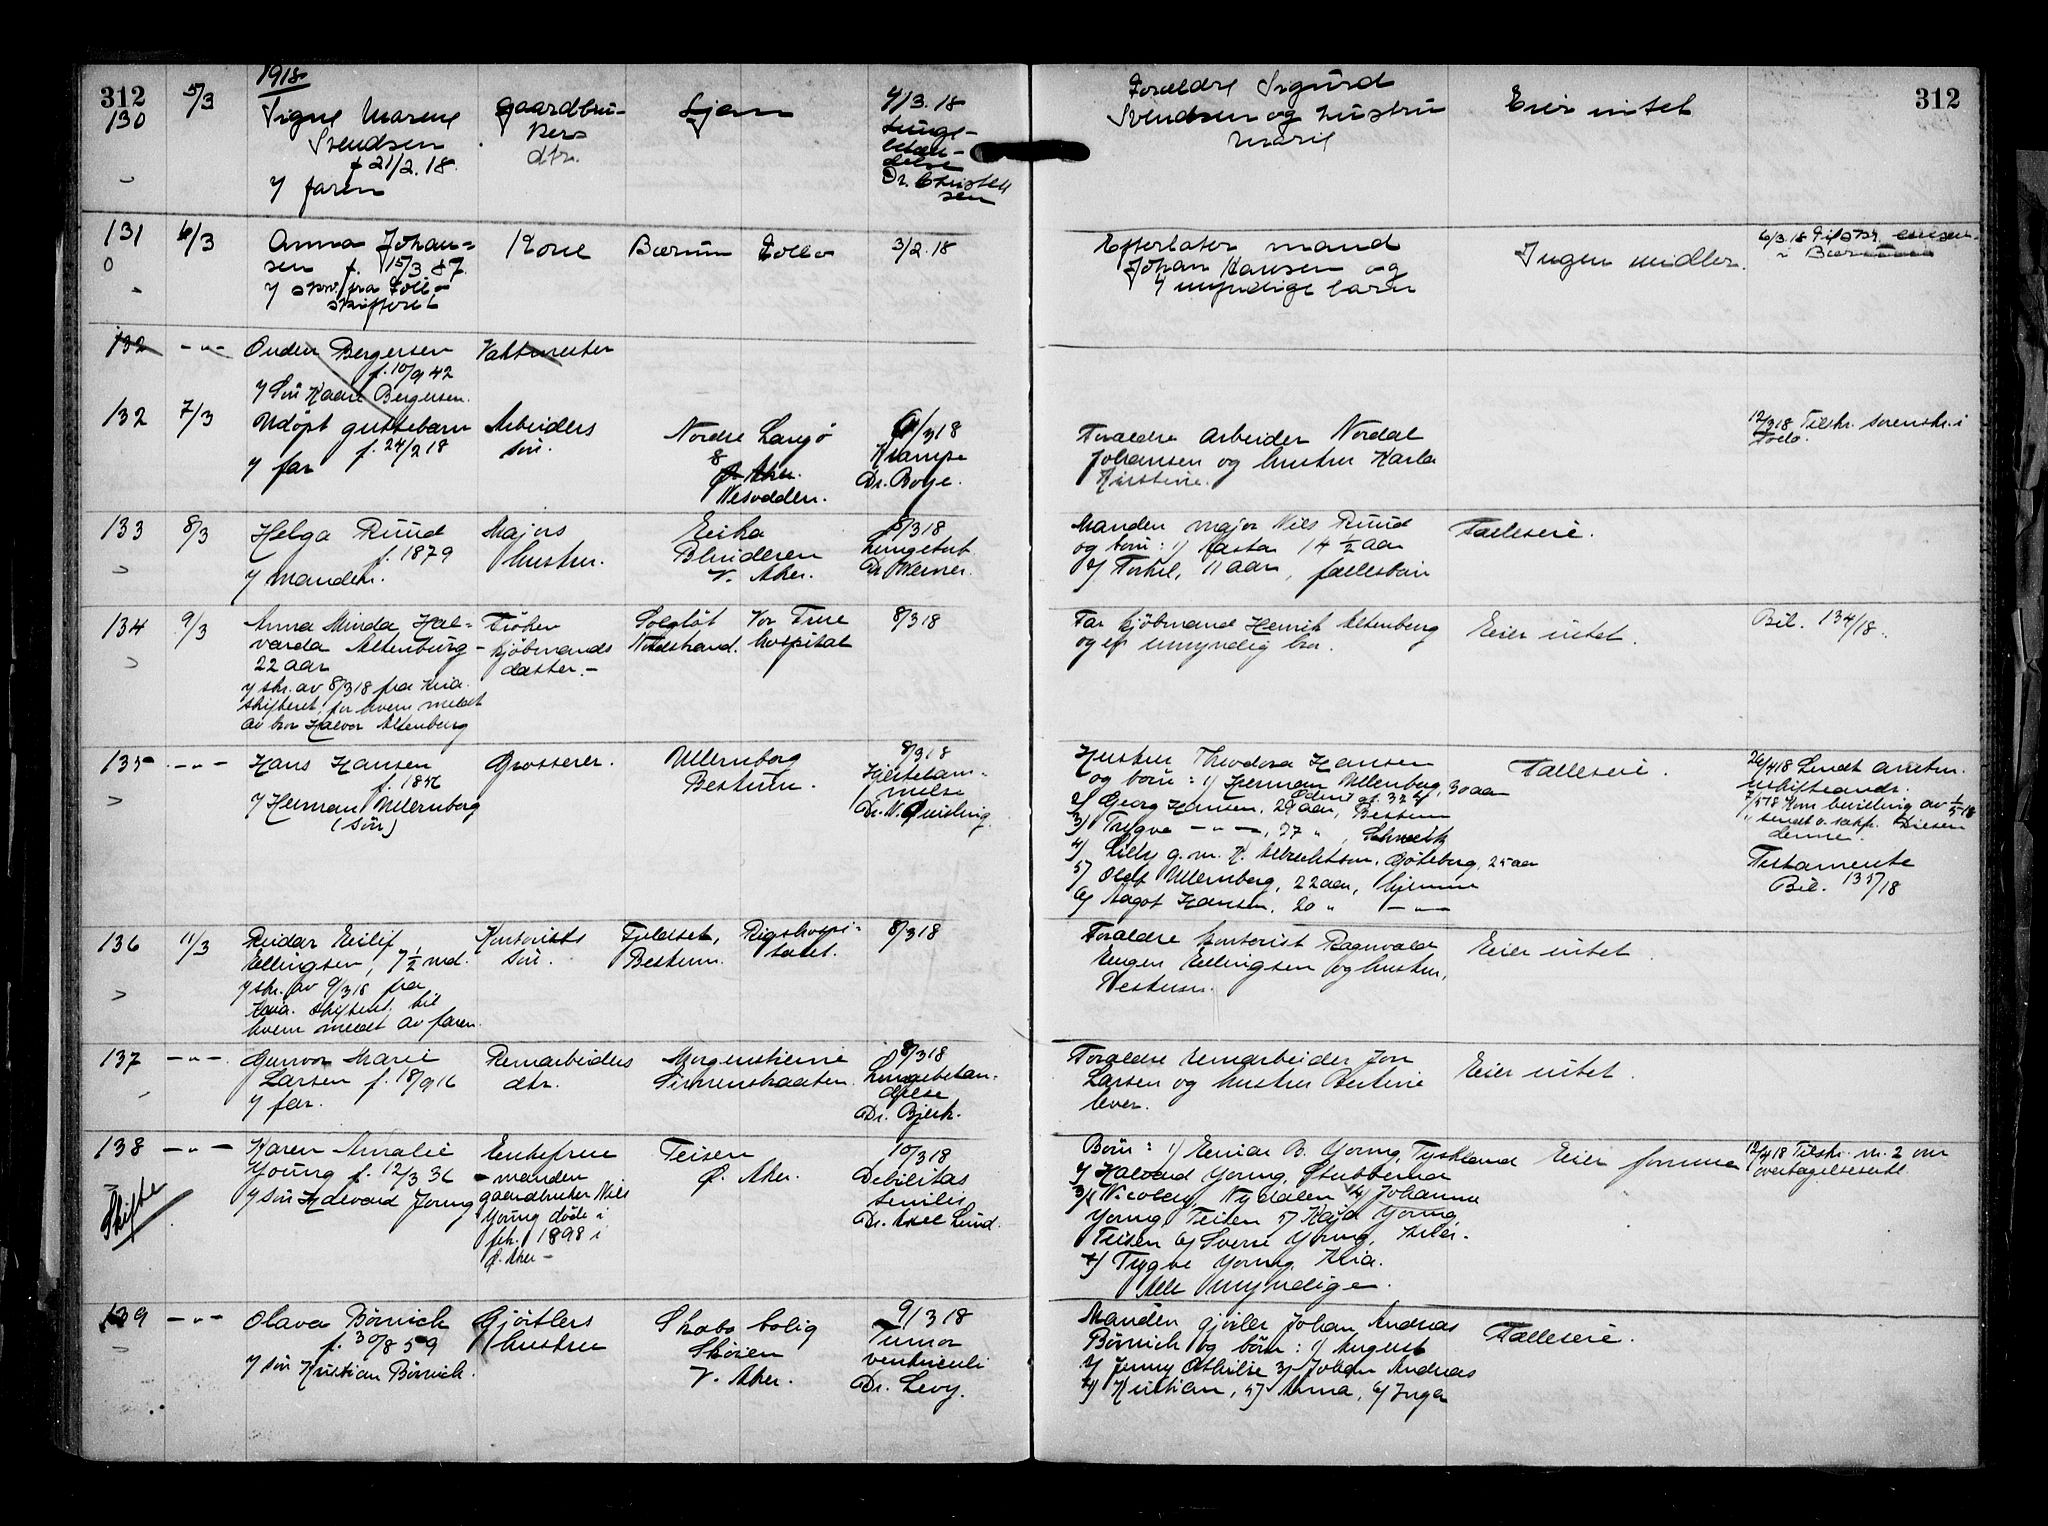 312
1918
130
5/3
Signe Marene
Svendsen
f 21/2.18.
v/ faren
Gaardbru-
kers
dtr.
Ljan
4/3.18
Lunge-
betæn-
delse
Dr. Christen
sen
Forældre Sigurd
Svendsen og hustru
Marie
Eier intet
312
131
6/3
Anna Johan-
sen f. 15/3 87.
v/ skr. fra Follo
skifteret
Kone
Bærum
Follo
3/2.18
Efterlater mand
Johan Hansen og
4 umyndige barn
Ingen midler.
6/3.18 Tilskr.
i Bærum
132
- " -
Bergersen
f. 10/9 42
v/ Sön Kaare Bergersen.
Vaktmester
132
7/3
Udöpt guttebarn
f. 24/2 18
v/ far
Arbeiders
sön.
Nordre Langö
Ø. Aker.
Nesodden.
6/3 18
Krampe
Dr. Boye.
Foraldre arbeider Nordal
Johansen og hustru Karla
Kirstine.
12/3 18 Tilskr. sorenskr. i
Follo.
133
8/3
Helga Ruud
f. 1879
v/ manden.
Majors
hustru.
Erika
Blinderen
V. Aker.
8/3 18
Lungetub.
Dr. Werner.
Manden major Nils Ruud
og börn: 1) Casta 14 1/2 aar
2/ Torkel, 11 aar, fællesbarn
Fælleseie.
134
9/3
Anna Minda Hal-
varda Altenburg -
22 aar
v/ skr. av 8/3 18 fra Kria.
skifteret, for hvem meldt
av bror Halvor Altenburg
Fröken
Kjöbmands
datter. -
Solglöt
Nordstrand.
Vor Frue
hospital
8/3 18
Far kjöbmand Henrik Altenberg
og en umyndig bror.
Eier intet.
Bil. 134/18.
135
- " -
Hans Hansen
f. 1856
v/ Herman Ullernborg
(sön)
Grosserer.
Ullernborg
Bestum.
8/3 18
Hjertelam-
melse
Dr. N. Quisling.
Hustru Theodora Hansen
og börn: 1) Herman Ullernborg, 30 aar
2) Georg Hansen, 29 aar, Bestum
3) Trygve - " -, 27 ", Schweitz
4) Lilly g. m. K. Albrechtsen, Göteborg, 25 aar
5) Olaf Ullernborg, 22 aar, hjemme
6) Aagot Hansen, 20 " - " -
Fælleseie.
26/4 18 Sendt anm.
uskifteandr.
7/5 18 Kom. bevilling av 1/5 18
sendt o. sakf. Diesen
denne.
Testamente
Bil. 135/18
136
11/3
Reidar Eilif
Ellingsen, 7 1/2 md.
v/ skr. av 9/3 18 fra
Kria. skifteret. til
hvem meldt av faren.
Kontorists
sön.
Fjeldset,
Bestum.
Rigshospi-
talet.
8/3 18
Foraldre kontorist Ragnvald
Eugen Ellingsen og hustru,
Bestum.
Eier intet.
137
- " -
Gunvor Marie
Larsen f. 18/9 16
v/ far.
Remarbeiders
dtr.
Morgenstierne
Simenstraaten.
8/3 18
Lungebetæn-
delse
Dr. Bjerk.
Foraldre remarbeider Jon
Larsen og hustru Bertine
lever.
Eier intet.
138
- " -
Skifte
Karen Amalie
Young f. 12/3 36
v/ sön Halvard Young
Enkefrue
- manden
gaardbruker Nils
Young döde i
febr. 1898 i
Ø. Aker -
Teisen
Ø. Aker.
10/3 18
Debilitas
senilis
Dr. Axel Lund.
Börn: 1) Einar B. Young, Tyskland
2) Halvard Young, Stubberud
3) Nicolay, Nydalen 4) Johanna
Young Teisen 5) Kaja Young,
Teisen 6) Sverre Young,
7) Trygve Young Kria.
Alle myndige.
Eier formue
12/4 18 Tilskr. m. 2 om
overtagelsesutl.
139
- " -
Olava Börnich
f. 30/8 59
v/ sön Kristian Börnich.
Gjörtlers
hustru
Skabo bolig
Sköien
V. Aker.
9/3 18
Tumor
ventriculi
Dr. Levy.
Manden gjörtler Johan Andreas
Börnich og börn: 1) August
2) Jenny Othilie 3) Johan Andreas
4) Kristian, 5) Anna, 6) Inga
Fælleseie.